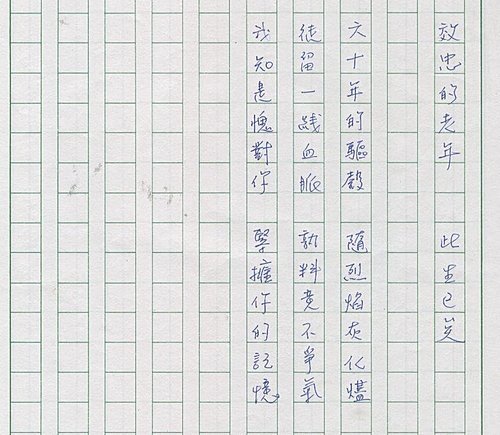 效忠的老年　此生已矣
六十年的驅殼　隨烈焰灰化燼
徒留一綫血脈　孰料竟不爭氣
我知是愧對你　緊擁你的記憶